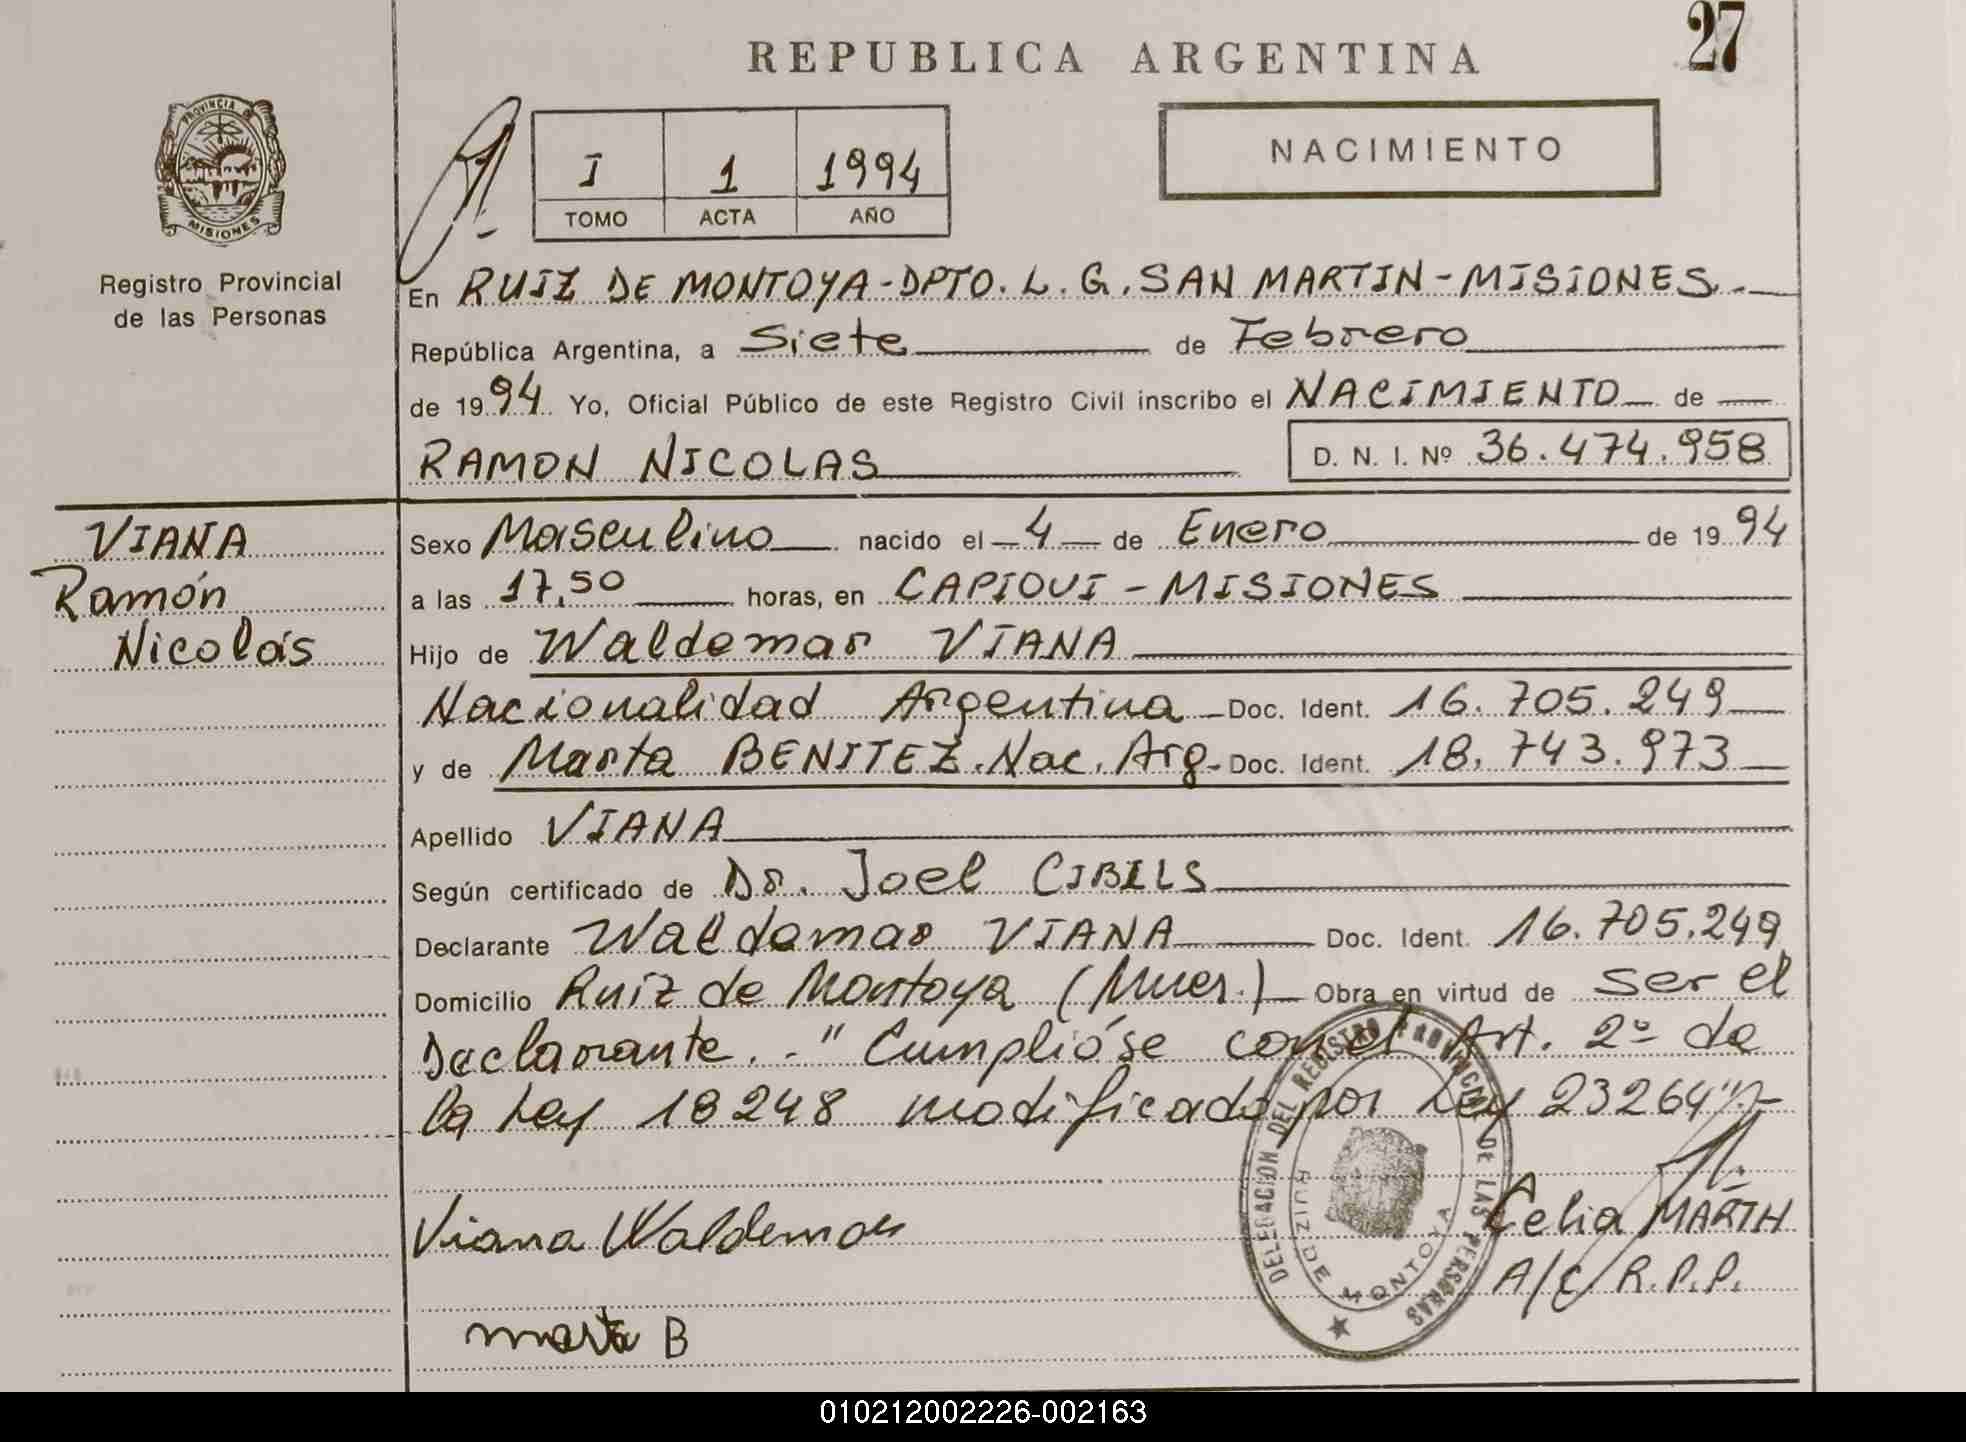 27
REPUBLICA ARGENTINA
NACIMIENTO
PROVINCIA DE MISIONES
Registro Provincial
de las Personas
I 1 1994
TOMO ACTA AÑO
En RUIZ DE MONTOYA - DPTO. L. G. SAN MARTIN - MISIONES.-
República Argentina, a Siete de Febrero
de 1994 Yo, Oficial Público de este Registro Civil inscribo el NACIMIENTO de
RAMON NICOLAS D. N. I. Nº 36.474.958
VIANA
Ramón
Nicolás
Sexo Masculino nacido el 4 de Enero de 1994
a las 17,50 horas, en CAPIOVI - MISIONES
Hijo de Waldemar VIANA
Nacionalidad Argentina - Doc. Ident. 16.705.249
y de Marta BENITEZ. Nac. Arg. Doc. Ident. 18.743.973
Apellido VIANA
Según certificado de Dr. Joel CIBILS
Declarante Waldemar VIANA Doc. Ident. 16.705.249
Domicilio Ruiz de Montoya (Mnes.) Obra en virtud de ser el
Declarante. - "Cumplióse con el Art. 2º de
la Ley 18248 modificado por Ley 23264".-
DELEGACION DEL REGISTRO PROVINCIAL DE LAS PERSONAS
RUIZ DE MONTOYA
Viana Waldemar
Celia MARTH
A/C R.P.P.
Marta B
010212002226-002163